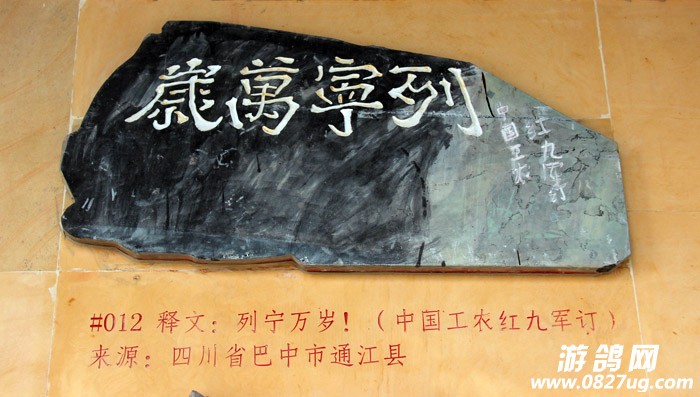 列寧萬歲
中国工农
红九军订
#012 释文：列宁万岁！（中国工农红九军订）
来源：四川省巴中市通江县
游鸽网
www.0827ug.com